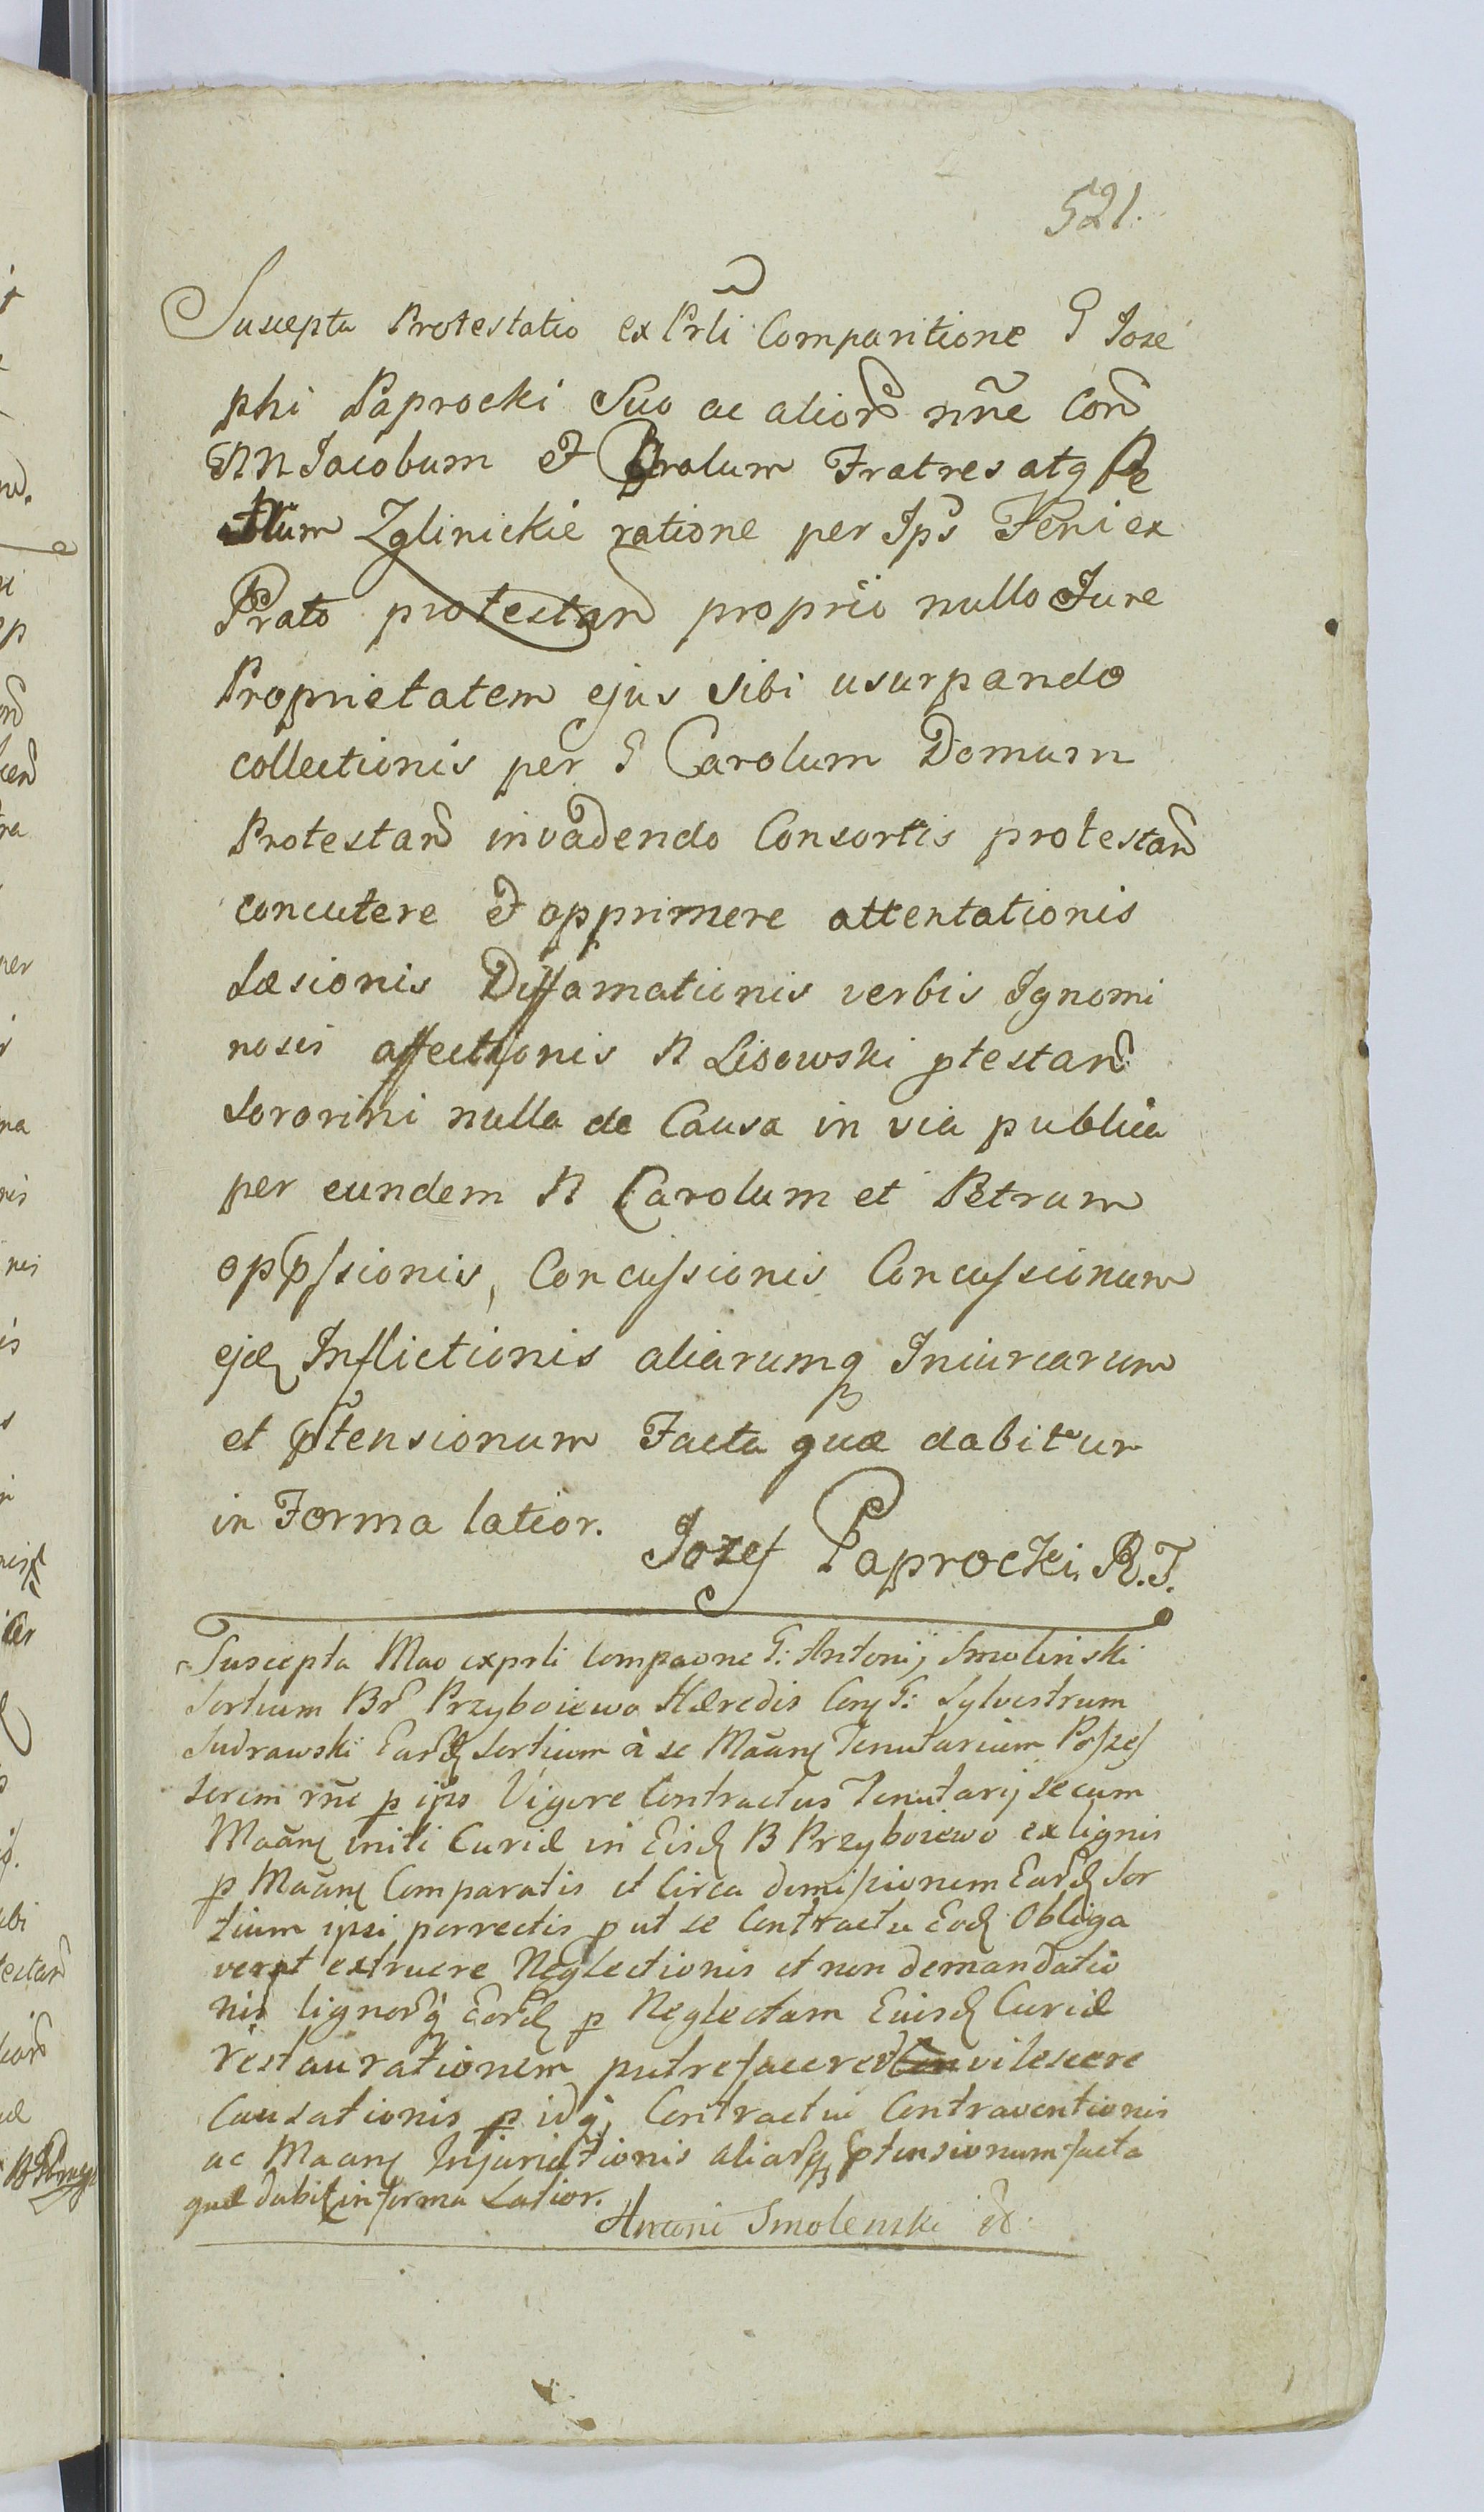 521.
Suscepta Protestatio ex Prli Comparitione G Jose
phi Paprocki Suo ac alior̃ nñe Con͠
NN Jacobum et Carolum Fratres atq Pe
trum Zglinickie ratione per Ips͠ Feni ex
Prato protestan͠ proprio nullo Jure
Proprietatem ejus sibi usurpando
collectionis per G Carolum Domum
Protestan͠ invadendo Consortis protestan͠
concutere et opprimere attentationis
Læsionis Diffamationis verbis Ignomi
nosis affectionis N Lisowski ptestan͠
sororini nulla de Causa in via publica
per eundem N Carolum et Petrum
oppssionis, Concussionis Concussionum
ejdq Inflictionis aliarumq Iniuriarum
et ptensionum Facta quæ dabitur
in Forma latior.
Jozef Paprocki R.T.
Suscepta Mao ex prli Compaone G: Antonij Smolinski
Sortium Br͠ Przyboiewo Hæredis Con G: Sylvestrum
Sudrawski Ear͠d Sortium à se Mãan Tenutarium Posses
sorem rñe p ips Vigore Contractus Tenutarij secum
Mãan initi Curiæ in Eisd B Przyboiewo ex lignis
p Mãan Comparatis et Circa dimissionem Ear͠d Sor
tium ipsi porrectis p ut se Contractu Eod Obliga
verat extruere Neglectionis et non demandatio
nis lignor͠q Eor͠d p Neglectam Euisd Curiæ
restaurationem putrefacere et vilescere
Causationis p idq Contractui Contraventionis
ac Maan Injuriationis aliar͠q ptensionum facta
quæ dabit in forma Latior.
Antoni Smolenski